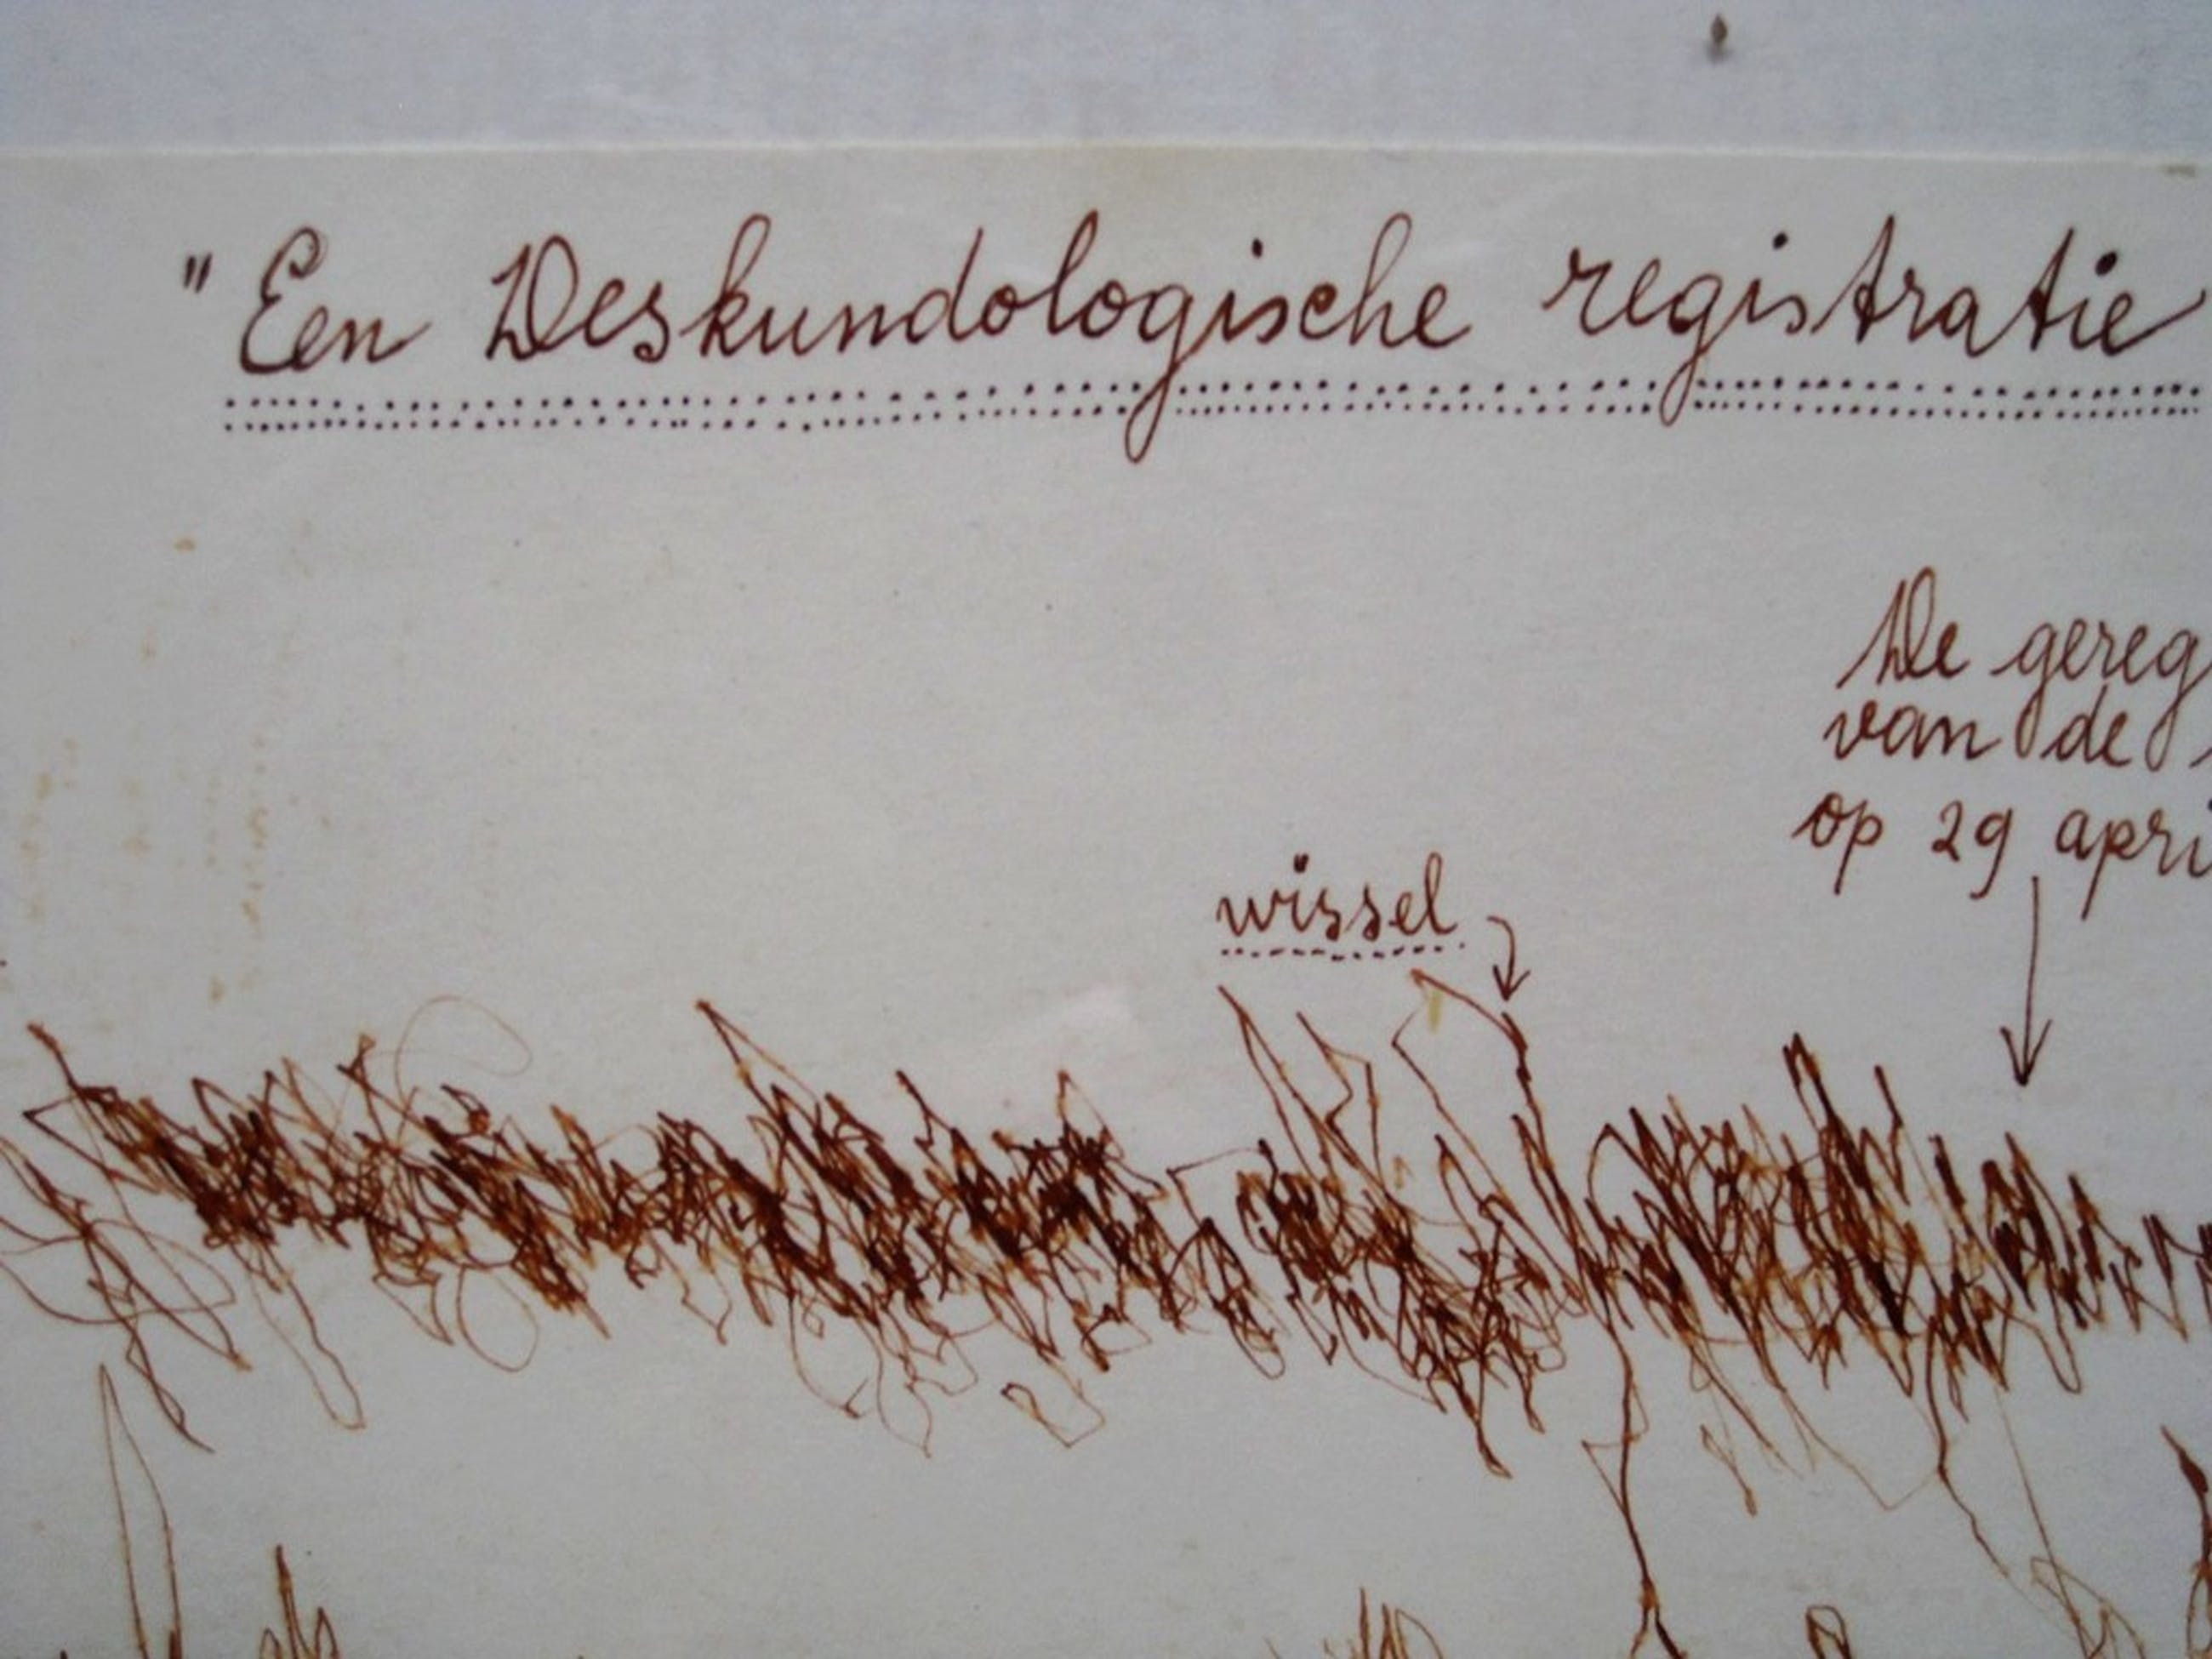 "Een Deskundologische registratie
De gereg
van de
op 29 apri
wissel